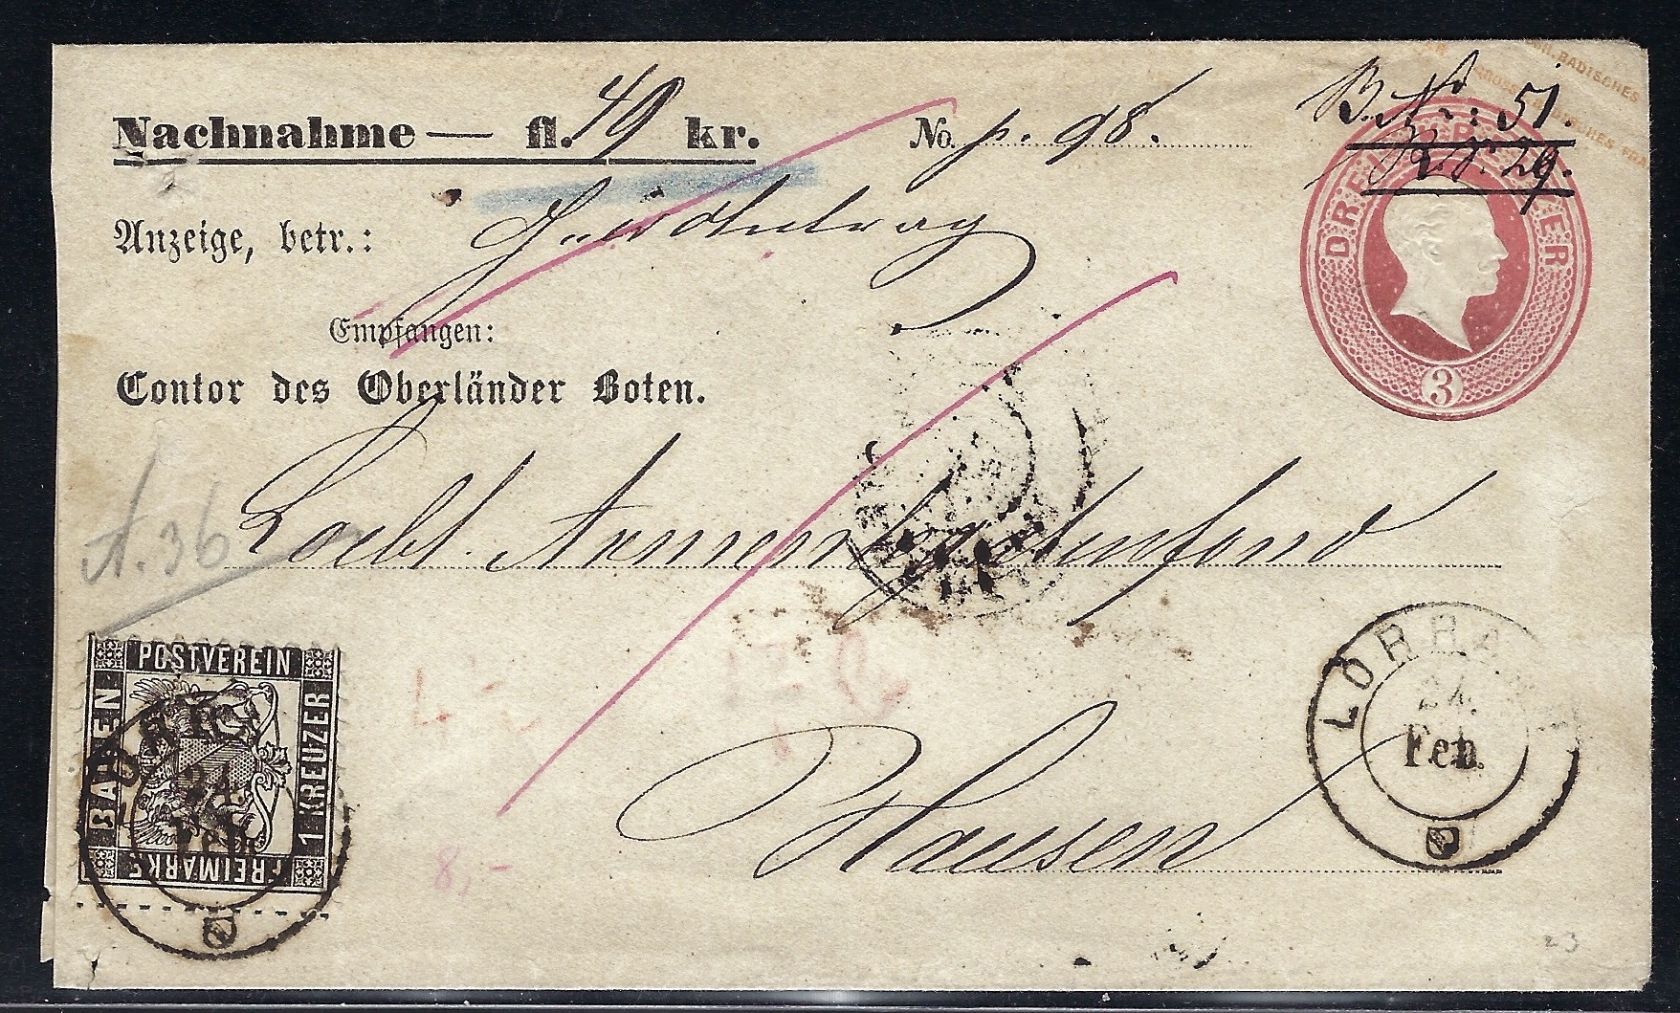 Nachnahme — fl. 49 kr. No. p. 98.
B. Nr: 51.
R. Nr. 29.
DREI KREUZER
3
Anzeige, betr.:
Empfangen:
Contor des Oberländer Boten.
A. 36
Loebl. Armen
POSTVEREIN
BADEN
1 KREUZER
FREIMARKE
24.
Feb.
LÖRRACH
24.
Feb.
Hausen
8,-
23